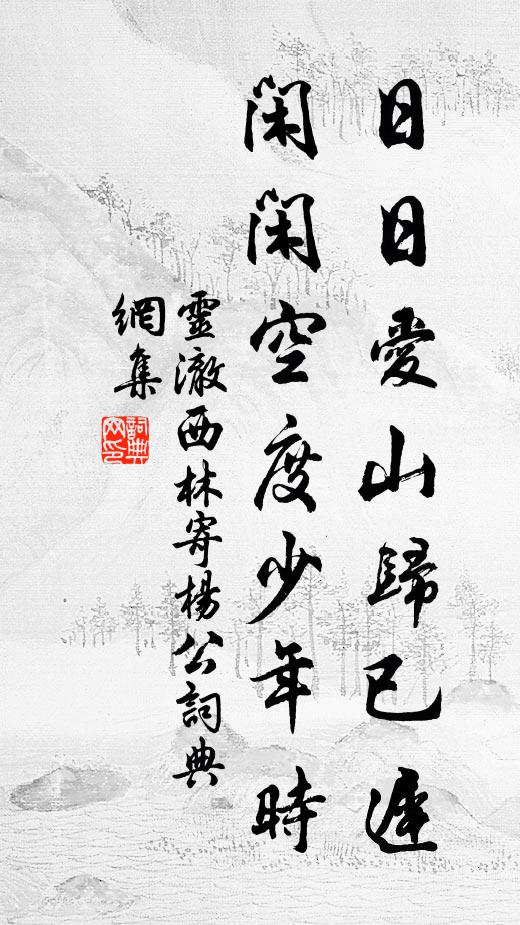 日日愛山歸已遲
閑閑空度少年時
靈澈西林寄楊公詞典
網集
詞典網印